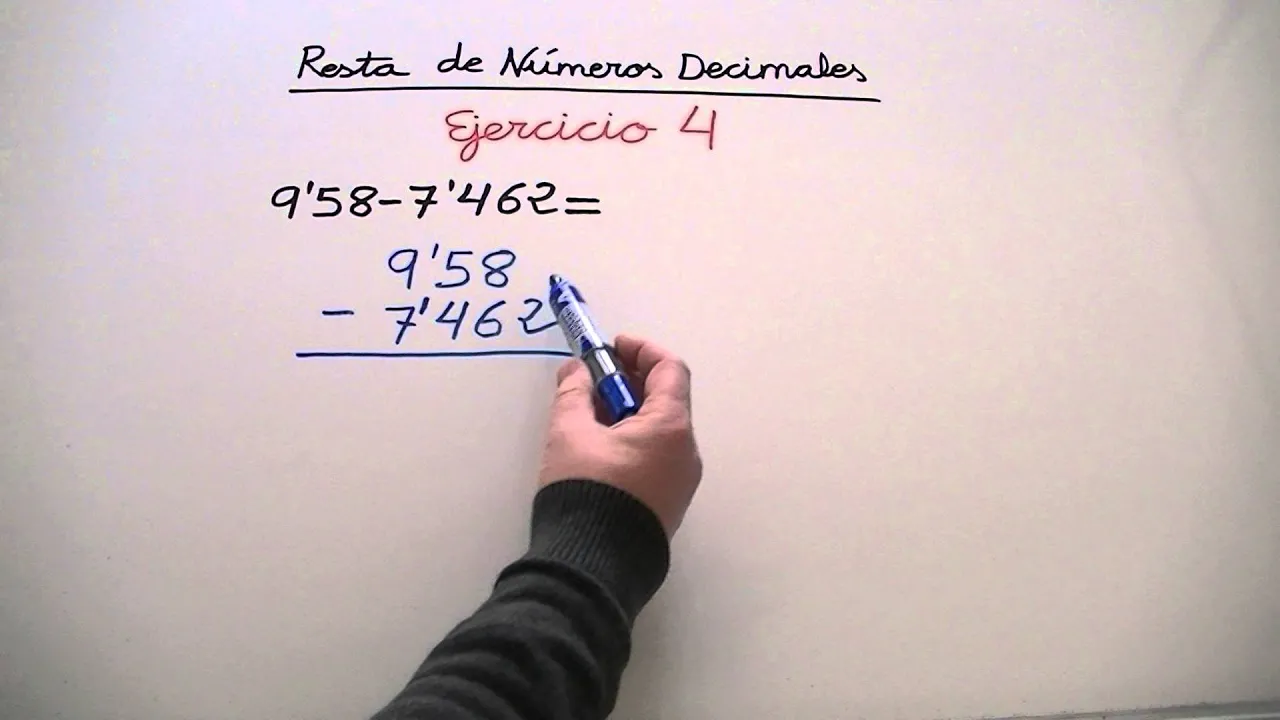 Resta de Números Decimales
Ejercicio 4
9'58-7'462=
9'58
- 7'462